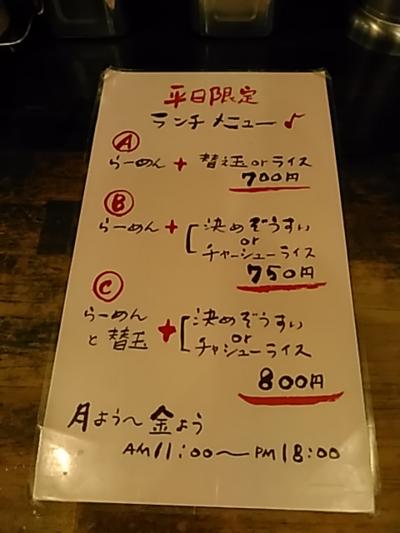 平日限定
ランチメニュー♪
Ⓐ
らーめん + 替え玉orライス
700円
Ⓑ
らーめん + [決めぞうすい
or
チャーシューライス
750円
Ⓒ
らーめん
と替玉 + [決めぞうすい
or
チャシューライス
800円
月よう〜金よう
AM11:00〜PM18:00